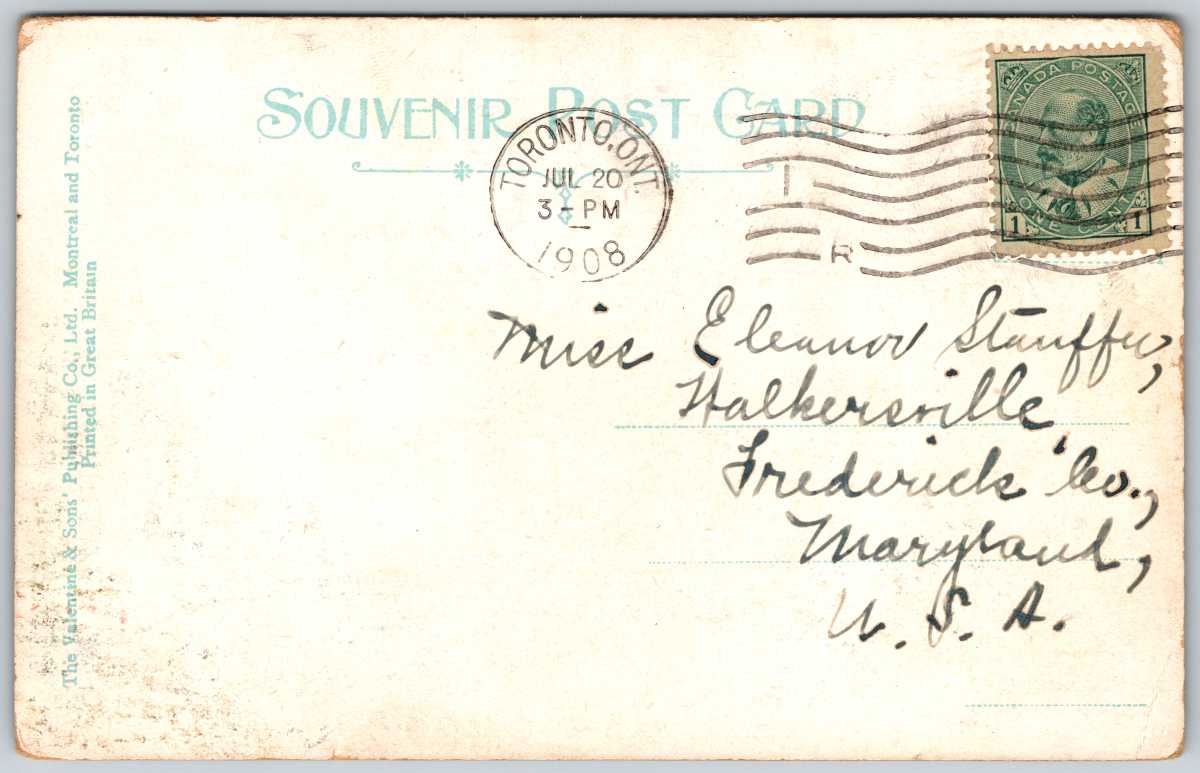 SOUVENIR POST CARD
TORONTO, ONT.
JUL 20
3 - PM
1908
I
R
CANADA POSTAGE
1 ONE CENT 1
Miss Eleanor Stauffer,
Walkersville
Frederick Co.,
Maryland,
U. S. A.
The Valentine & Sons' Publishing Co., Ltd. Montreal and Toronto
Printed in Great Britain